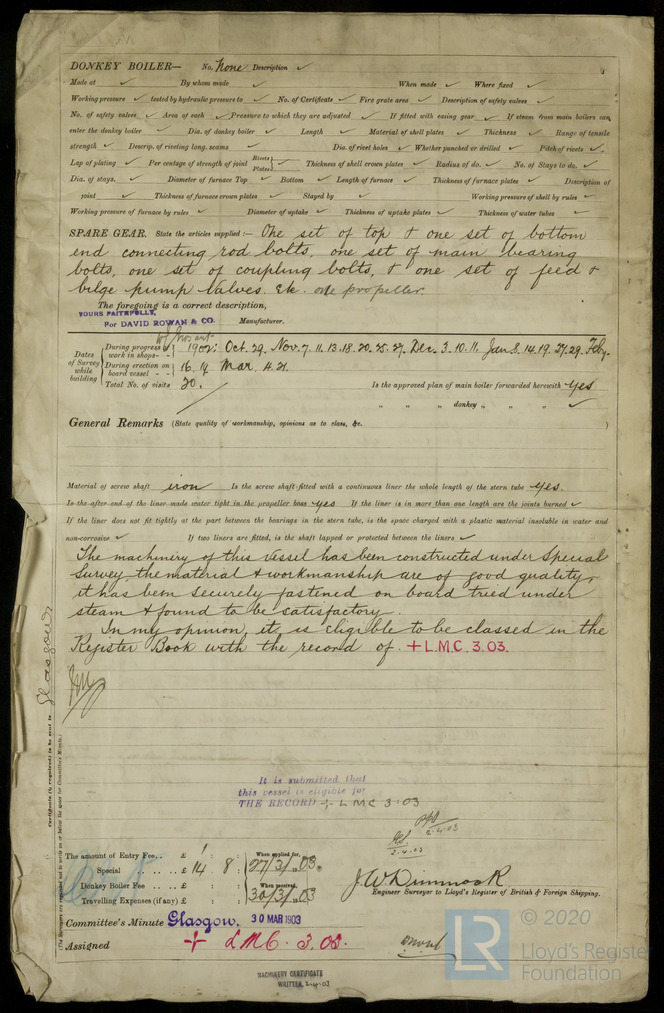 DONKEY BOILER— No. None Description ✓
Made at ✓ By whom made ✓ When made ✓ Where fixed ✓
Working pressure ✓ tested by hydraulic pressure to ✓ No. of Certificate ✓ Fire grate area ✓ Description of safety valves ✓
No. of safety valves ✓ Area of each ✓ Pressure to which they are adjusted ✓ If fitted with easing gear ✓ If steam from main boilers can
enter the donkey boiler ✓ Dia. of donkey boiler ✓ Length ✓ Material of shell plates ✓ Thickness ✓ Range of tensile
strength ✓ Descrip. of riveting long. seams ✓ Dia. of rivet holes ✓ Whether punched or drilled ✓ Pitch of rivets ✓
Lap of plating ✓ Per centage of strength of joint Rivets ✓ Plates ✓ Thickness of shell crown plates ✓ Radius of do. ✓ No. of Stays to do. ✓
Dia. of stays. ✓ Diameter of furnace Top ✓ Bottom ✓ Length of furnace ✓ Thickness of furnace plates ✓ Description of
joint ✓ Thickness of furnace crown plates ✓ Stayed by ✓ Working pressure of shell by rules ✓
Working pressure of furnace by rules ✓ Diameter of uptake ✓ Thickness of uptake plates ✓ Thickness of water tubes ✓
SPARE GEAR. State the articles supplied :— One set of top & one set of bottom
end connecting rod bolts, one set of main bearing
bolts, one set of coupling bolts, & one set of feed &
bilge pump valves. &c. one propeller.
The foregoing is a correct description,
YOURS FAITHFULLY,
For DAVID ROWAN & CO. Manufacturer.
Dates of Survey while building
During progress of work in shops - - 1902: Oct. 29. Nov. 7. 11. 13. 18. 20. 25. 27. Dec. 3. 10. 11. Jan 8. 14. 19. 27. 29. Feby.
During erection on board vessel - - 16. 17 Mar. 4. 21.
Total No. of visits 20. Is the approved plan of main boiler forwarded herewith yes
" " " donkey " " " ✓
General Remarks (State quality of workmanship, opinions as to class, &c. )
Material of screw shaft iron Is the screw shaft fitted with a continuous liner the whole length of the stern tube yes.
Is the after end of the liner made water tight in the propeller boss yes If the liner is in more than one length are the joints burned ✓
If the liner does not fit tightly at the part between the bearings in the stern tube, is the space charged with a plastic material insoluble in water and
non-corrosive ✓ If two liners are fitted, is the shaft lapped or protected between the liners ✓
The machinery of this vessel has been constructed under Special
Survey the material & workmanship are of good quality,
it has been securely fastened on board tried under
steam & found to be satisfactory.
In my opinion it is eligible to be classed in the
Register Book with the record of + L.M.C. 3.03.
Certificate (if required) to be sent to Glasgow
(The Surveyors are requested not to write on or below the space for Committee's Minute.)
It is submitted that
this vessel is eligible for
THE RECORD + LMC 3.03
2.4.03
2.4.03
The amount of Entry Fee.. £ 1 : : When applied for,
Special .. .. .. £ 14 : 8 : 27/3/03
Donkey Boiler Fee .. .. .. £ : : When received,
Travelling Expenses (if any) £ : : 30/3/03
J W Dimmock
Engineer Surveyor to Lloyd's Register of British & Foreign Shipping.
Committee's Minute Glasgow. 30 MAR 1903
Assigned + L.M.C. 3.03.
MACHINERY CERTIFICATE
WRITTEN. 2.4.03
LR © 2020
Lloyd's Register
Foundation